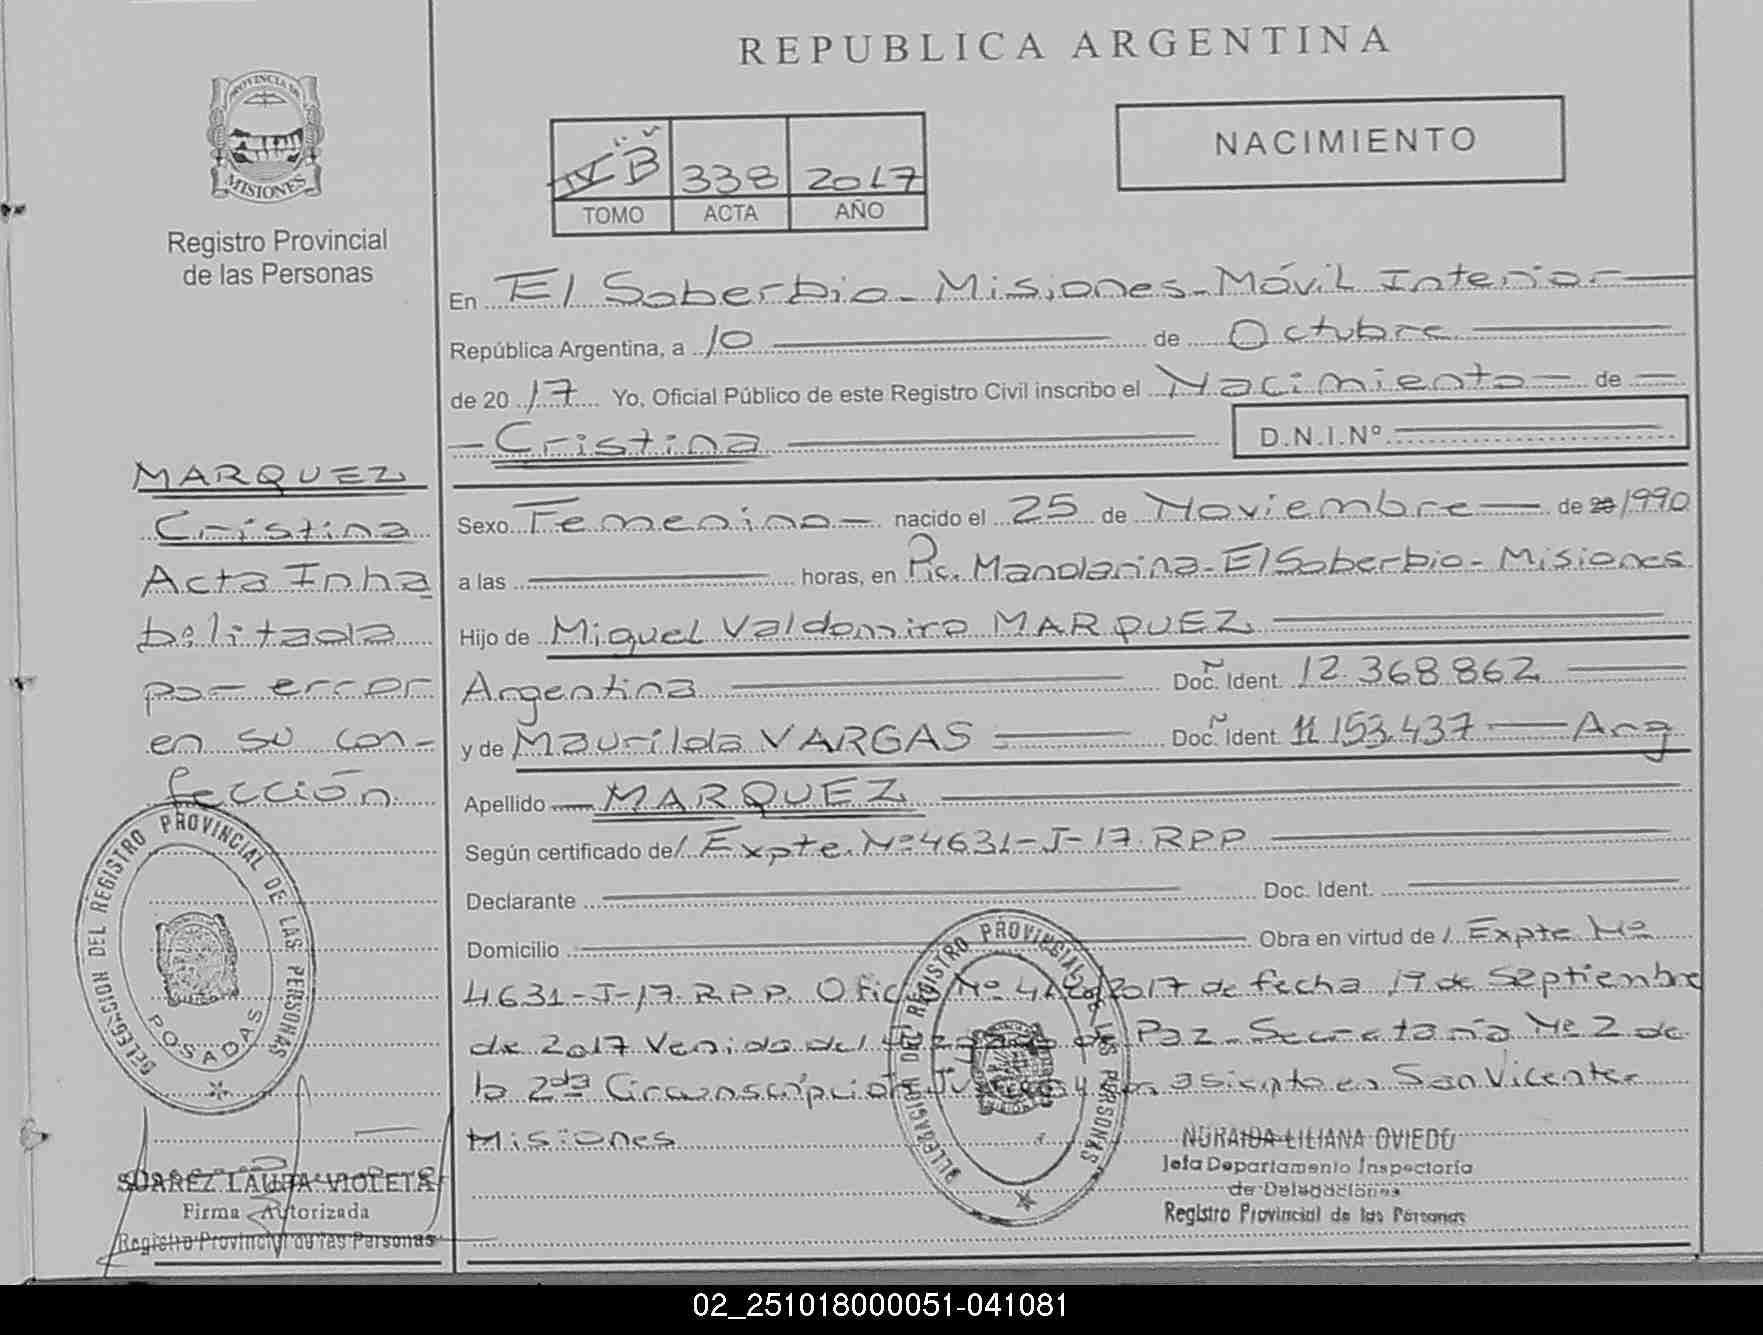 REPUBLICA ARGENTINA
PROVINCIA DE
MISIONES
Registro Provincial
de las Personas
NACIMIENTO
B 338 2017
TOMO ACTA AÑO
En El Soberbio - Misiones - Móvil Interior
República Argentina, a 10 de Octubre
de 2017 Yo, Oficial Público de este Registro Civil inscribo el Nacimiento de
Cristina D.N.I.Nº
Sexo Femenino nacido el 25 de Noviembre de 20/1990
a las horas, en Pic. Mandarina - El Soberbio - Misiones
Hijo de Miguel Valdomiro MARQUEZ
Argentina Doc. Ident. 12.368.862
y de Maurilda VARGAS Doc. Ident. 11.153.437 Arg
Apellido MARQUEZ
Según certificado de/ Expte. Nº 4631-J-17. RPP
Declarante Doc. Ident.
Domicilio Obra en virtud de/ Expte Nº
4631-J-17. R.P.P. Oficio Nº 2017 de fecha 19 de Septiembre
de 2017 Venido del Juzgado de Paz - Secretaría Nº 2 de
la 2da Circunscripción asiento en San Vicente
Misiones
MARQUEZ
Cristina
Acta Inha
bilitada
por error
en su con-
fección
DELEGACION DEL REGISTRO PROVINCIAL DE LAS PERSONAS
POSADAS
SUAREZ LAURA VIOLETA
Firma Autorizada
Registro Provincial de las Personas
DELEGACION DEL REGISTRO PROVINCIAL DE LAS PERSONAS
NORAIDA LILIANA OVIEDO
Jefa Departamento Inspectoría
de Delegaciones
Registro Provincial de las Personas
02_251018000051-041081